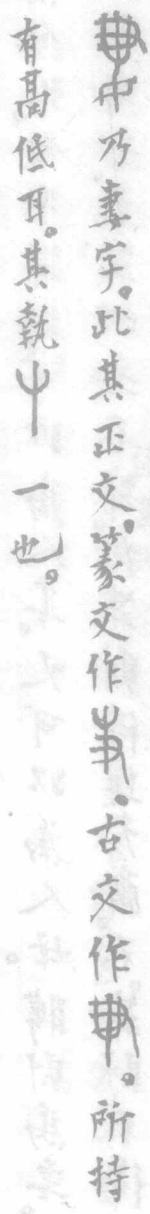 乃妻字。此其正文。篆文作。古文作。所持
有高低耳。其執屮一也。